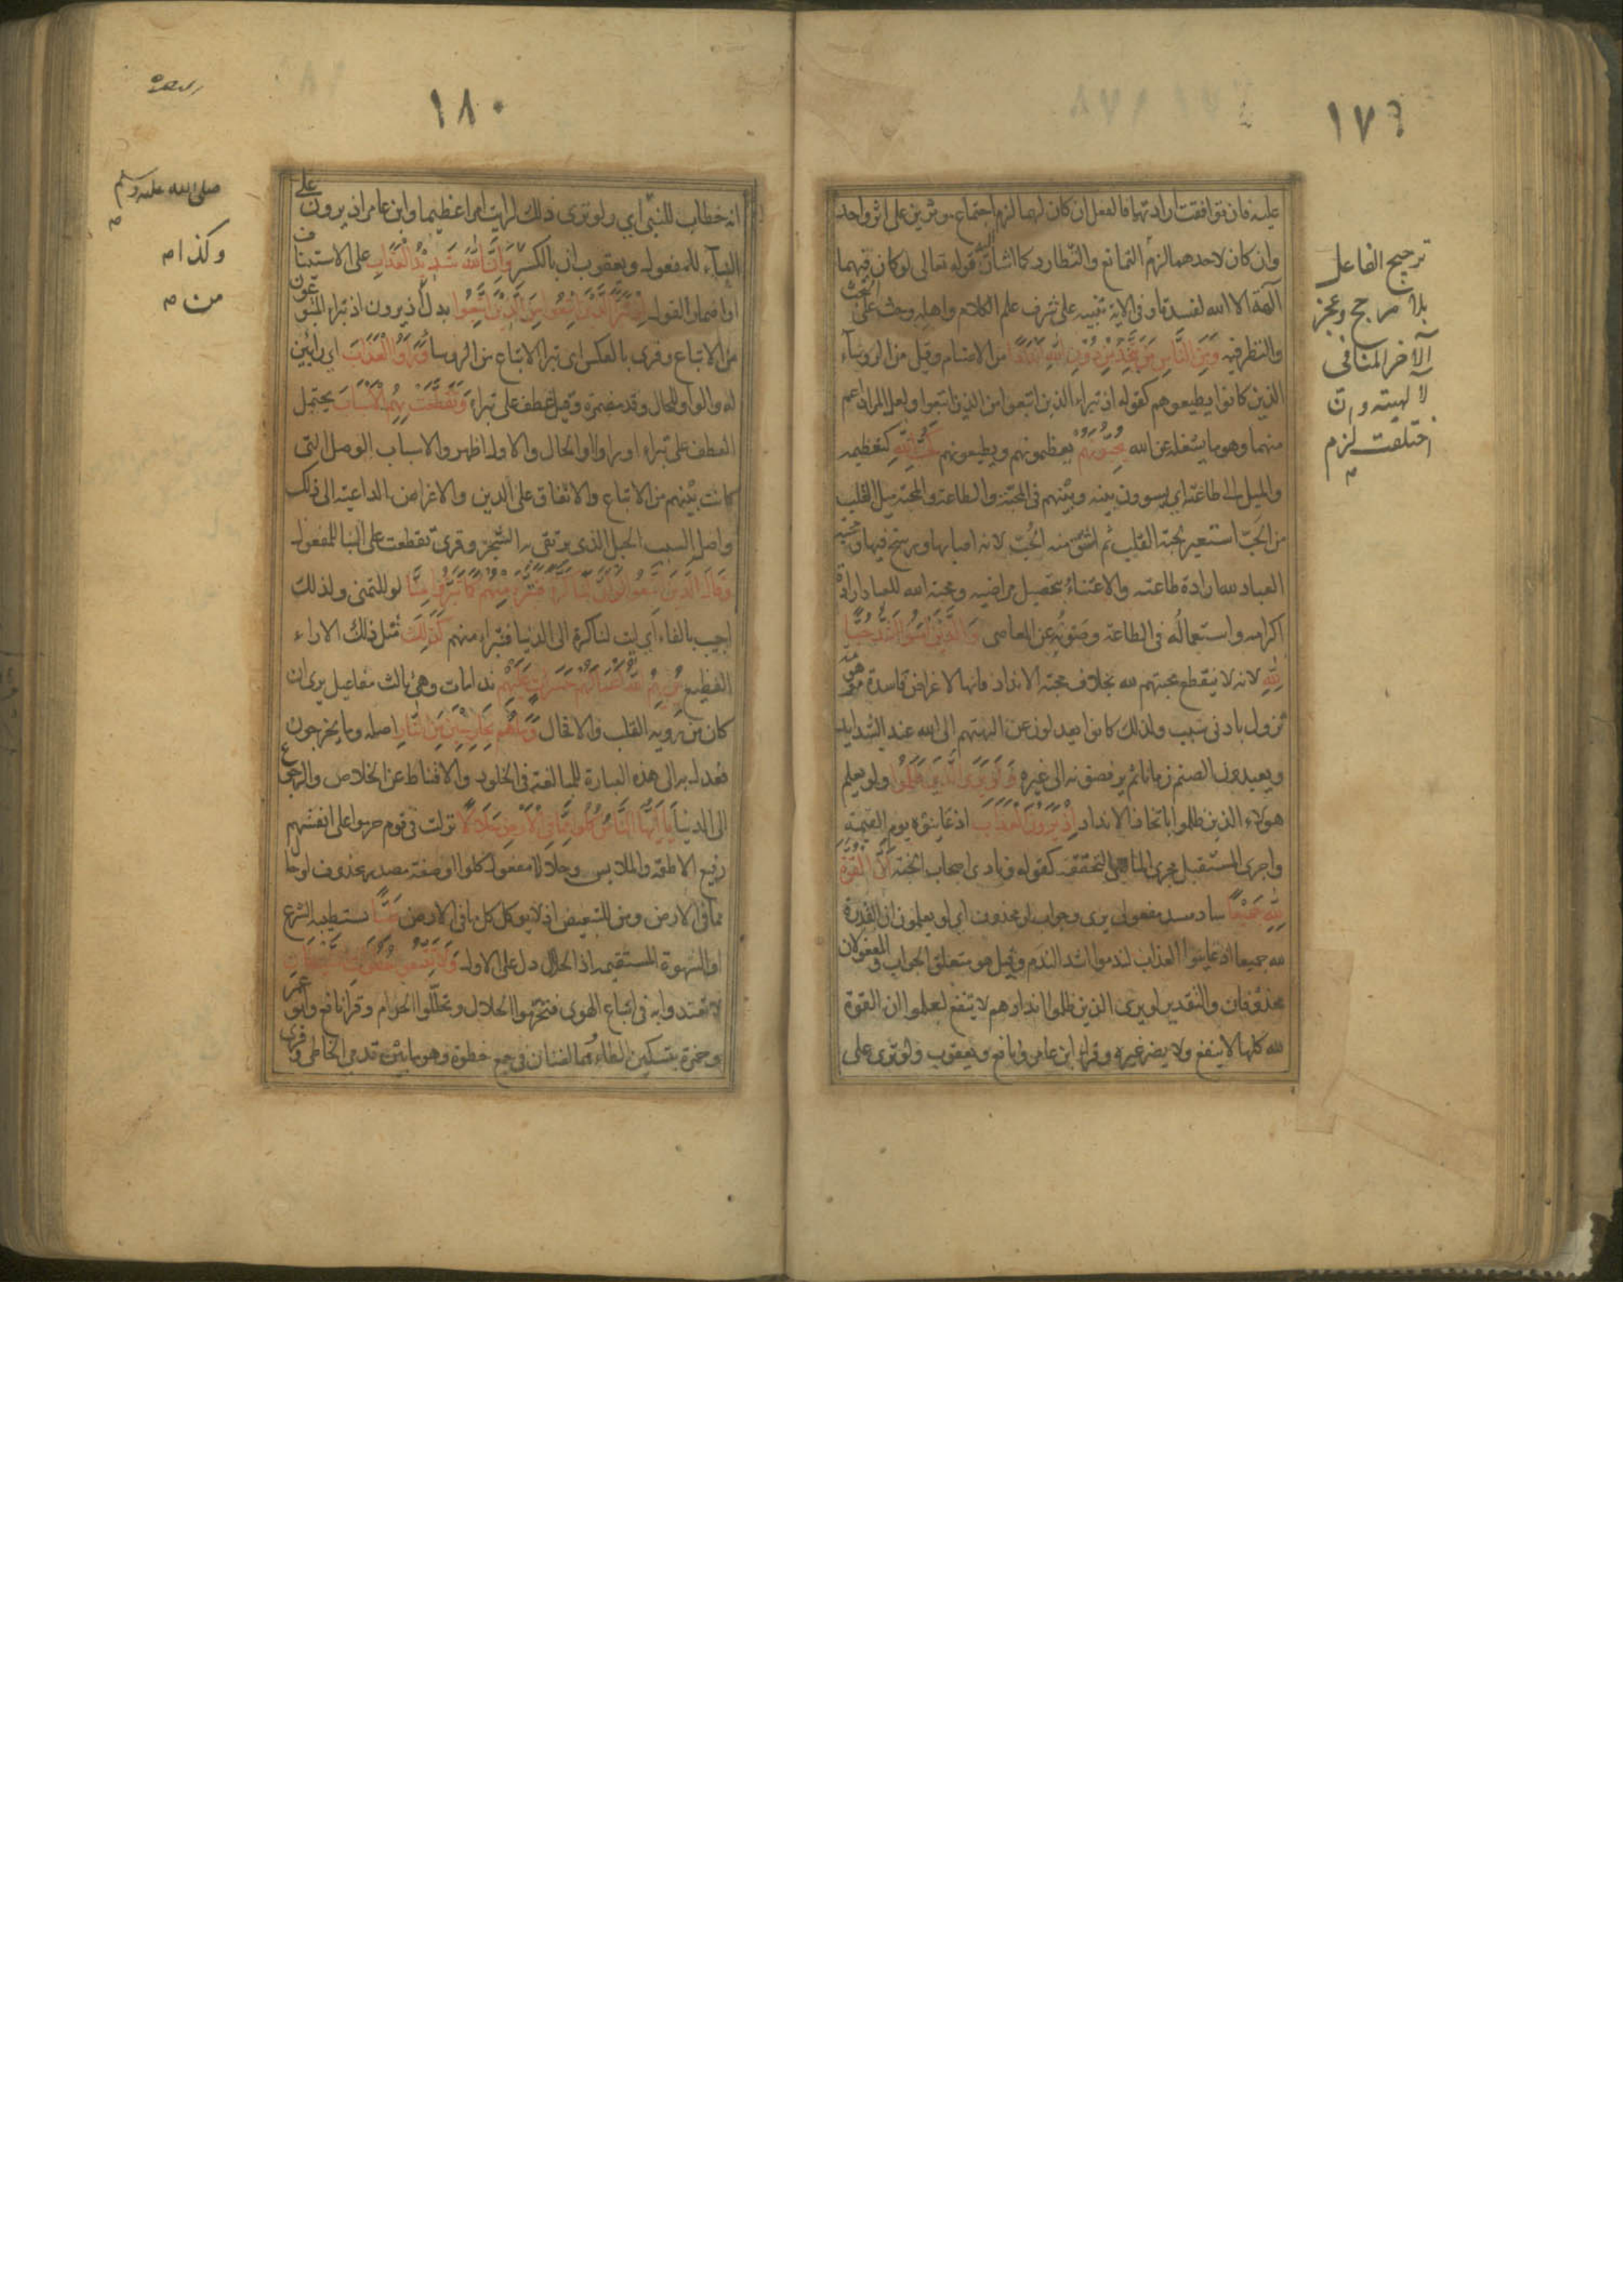 ١٧٩
عليه فان توافقت ارادتهما فالفعل ان كان لهما لزم اجتماع موثرين على اثر واحد
وان كان لاحدهما لزم التمانع والتطارد كما اشار اليه قوله تعالى لو كان فيهما
آلهة الا الله لفسدتا وفى الاية تنبيه على شرف علم الكلام واهله وحث على البحث
والنظر فيه وَمِنَ النَّاسِ مَنْ يَتَّخِذُ مِنْ دُوْنِ اللّٰهِ اَنْدَادًا من الاصنام وقيل من الروساء
الذين كانوا يطيعوهم كقوله اذ تبراء الذين اتبعوا من الذين اتبعوا ولعل المراد اعم
منهما وهو ما يشغله عن الله يُحِبُّوْنَهُمْ يعظمونهم ويطيعونهم كَحُبِّ اللّٰهِ كتعظيمه
والميل الى طاعته اى يسوون بينه وبينهم فى المحبة والطاعة والمحبة ميل القلب
من الحَبّ استعير لحبة القلب ثم اشتق منه الحُبّ لانه اصابها ورسخ فيها ومحبة
العباد لله ارادة طاعته والاعتناء بتحصيل مراضيه ومحبة الله للعباد ارادة
اكرامه واستعماله فى الطاعة وصونه عن المعاصى وَالَّذِيْنَ اٰمَنُوْا اَشَدُّ حُبًّا
لِلّٰهِ لانه لا ينقطع محبتهم لله بخلاف محبة الانداد فانها لاغراض فاسدة موهومة
تزول بادنى سبب ولذلك كانوا يعدلون عن الهتهم الى الله عند الشدايد
ويعبدون الصنم زمانا ثم يرفضونه الى غيره وَلَوْ يَرَى الَّذِيْنَ ظَلَمُوْا ولو يعلم
هولاء الذين ظلموا باتخاذ الانداد اِذْ يَرَوْنَ الْعَذَابَ اذ عاينوه يوم القيمة
واجرى المستقبل مجرى الماضى لتحققه كقوله ونادى اصحاب الجنة اَنَّ الْقُوَّةَ
لِلّٰهِ جَمِيْعًا ساد مسد مفعولى يرى وجواب لو محذوف اى لو يعلمون ان القدرة
لله جميعا اذ عاينوا العذاب لندموا اشد الندم وقيل هو متعلق الجواب والمفعولان
محذوفان والتقدير ولو يرى الذين ظلموا اندادهم لا تنفع لعلموا ان القوة
لله كلها لا ينفع ولا يضر غيره وقرا ابن عامر ونافع ويعقوب ولو ترى على
ترجيح الفاعل
بلا مرجح وعجز
الآخر المنافى
لالهيته وان
اختلفت لزم
١٨٠
انه خطاب للنبى اى ولو ترى ذلك لرايت امرا عظيما وابن عامر اذ يرون على
البناء للمفعول ويعقوب ان بالكسر وَاَنَّ اللّٰهَ شَدِيْدُ الْعَذَابِ على الاستيناف
او اضمار القول اِذْ تَبَرَّاَ الَّذِيْنَ اتُّبِعُوْا مِنَ الَّذِيْنَ اتَّبَعُوْا بدل من اذ يرون اذ تبراء المتبوعون
من الاتباع وقرى بالعكس اى تبرا الاتباع من الروسا وَرَاَوُا الْعَذَابَ اى رائين
له والواو للحال وقد مضمرة وقيل عطف على تبراء وَتَقَطَّعَتْ بِهِمُ الْاَسْبَابُ يحتمل
العطف على تبراء او راوا او الحال والاول اظهر والاسباب الوصل التى
كانت بينهم من الاتباع والاتفاق على الدين والاغراض الداعية الى ذلك
واصل السبب الحبل الذى يرتقى به الشجر وقرى تقطعت على البنا للمفعول
وَقَالَ الَّذِيْنَ اتَّبَعُوْا لَوْ اَنَّ لَنَا كَرَّةً فَنَتَبَرَّاَ مِنْهُمْ كَمَا تَبَرَّءُوْا مِنَّا لو للتمنى ولذلك
اجيب بالفاء اى ليت لنا كرة الى الدنيا فنتبراء منهم كَذٰلِكَ مثل ذلك الاراء
الفظيع يُرِيْهِمُ اللّٰهُ اَعْمَالَهُمْ حَسَرَاتٍ عَلَيْهِمْ ندامات وهى ثالث مفاعيل يرى ان
كان من روية القلب والا فحال وَمَا هُمْ بِخَارِجِيْنَ مِنَ النَّارِ اصله وما يخرجون
فعدل به الى هذه العبارة للمبالغة فى الخلود والاقناط عن الخلاص والرجوع
الى الدنيا يَا اَيُّهَا النَّاسُ كُلُوْا مِمَّا فِى الْاَرْضِ حَلَالًا نزلت فى قوم حرموا على انفسهم
رفيع الاطعمة والملابس وحلالا مفعول كلوا او صفة مصدر محذوف او حال
مما فى الارض ومن للتبعيض اذ لا يوكل كل ما فى الارض طَيِّبًا يستطيبه الشرع
او الشهوة المستقيمة اذ الحلال دل على الاول وَلَا تَتَّبِعُوْا خُطُوَاتِ الشَّيْطَانِ
لا تقتدوا به فى اتباع الهوى فتحرموا الحلال وتحللوا الحرام وقرا نافع وابو عمرو
وحمزة بتسكين الطاء وهما لغتان فى جمع خطوة وهو ما بين قدمى الخاطى وقرى
صلى الله عليه وسلم
وكذا م
من م